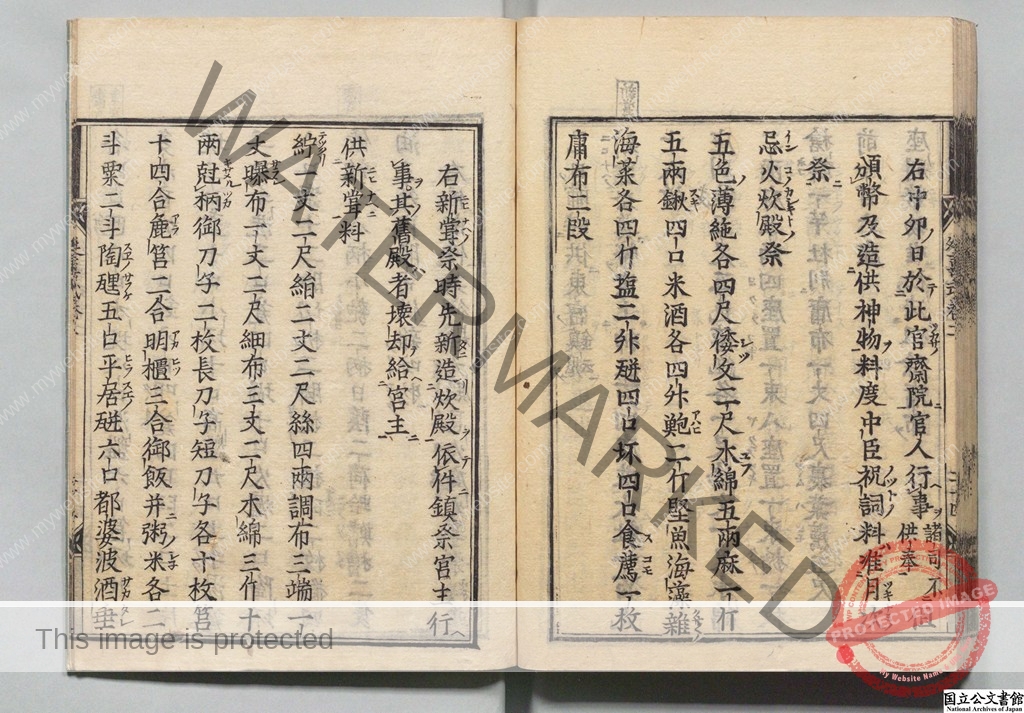 右中卯日於此官齋院官人行事 諸司不
供奉
頒幣及造供神物料度中臣祝詞料准月
祭
忌火炊殿祭
五色薄絁各四尺倭文二尺木綿五兩麻一斤
五兩鍬四口米酒各四升鰒二斤堅魚海藻雜
海菜各四斤塩二升瓼四口坏四口食薦一枚
庸布二段
右新嘗祭時先新造炊殿依件鎮祭宮主行
事其舊殿者壞却給宮主
供新嘗料
紵一丈二尺絹二丈二尺絲四兩調布三端一
丈曝布一丈二尺細布三丈二尺木綿三斤十
兩尅柄御刀子二枚長刀子短刀子各十枚筥
十四合麁筥二合明櫃三合御飯并粥米各二
斗粟二斗陶瓼五口平居瓼六口都婆波酒垂
WATERMARKED
This image is protected
PROTECTED IMAGE
PROTECTED
My Website Name
国立公文書館
National Archives of Japan